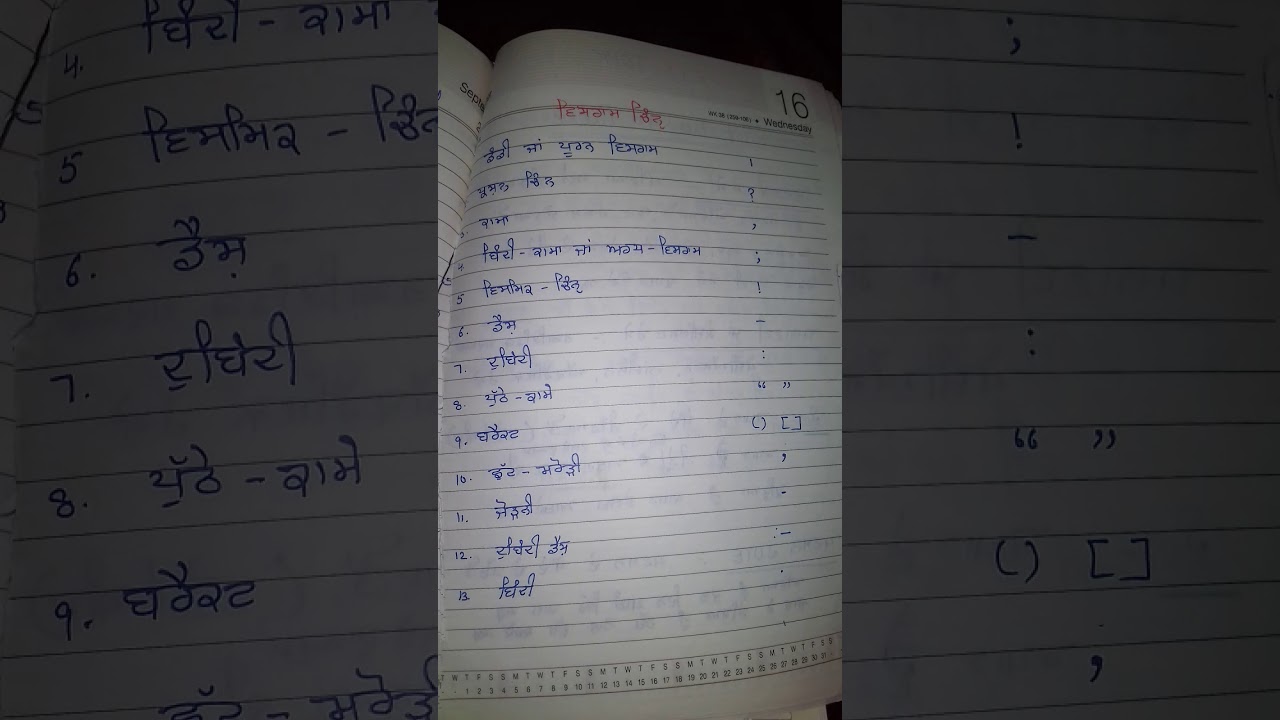 Septe
16
WK 38 (259-106) • Wednesday
ਵਿਸਰਾਮ ਚਿੰਨ੍ਹ
ਡੰਡੀ ਜਾਂ ਪੂਰਨ ਵਿਸਰਾਮ ।
ਪ੍ਰਸ਼ਨ ਚਿੰਨ ?
3. ਕਾਮਾ ,
4. ਬਿੰਦੀ - ਕਾਮਾ ਜਾਂ ਅਰਧ - ਵਿਸਰਾਮ ;
5 ਵਿਸਮਿਕ - ਚਿੰਨ੍ਹ !
6. ਡੈਸ਼ –
7. ਦੁਬਿੰਦੀ :
8. ਪੁੱਠੇ - ਕਾਮੇ “ ”
9. ਬਰੈਕਟ () []
10. ਛੁੱਟ - ਮਰੋੜੀ ’
11. ਜੋੜਨੀ -
12. ਦੁਬਿੰਦੀ ਡੈਸ਼ :–
13 ਬਿੰਦੀ .
T W T F S S M T W T F S S M T W T F S S M T W T F S S M T W T F S S
1 2 3 4 5 6 7 8 9 10 11 12 13 14 15 16 17 18 19 20 21 22 23 24 25 26 27 28 29 30 31